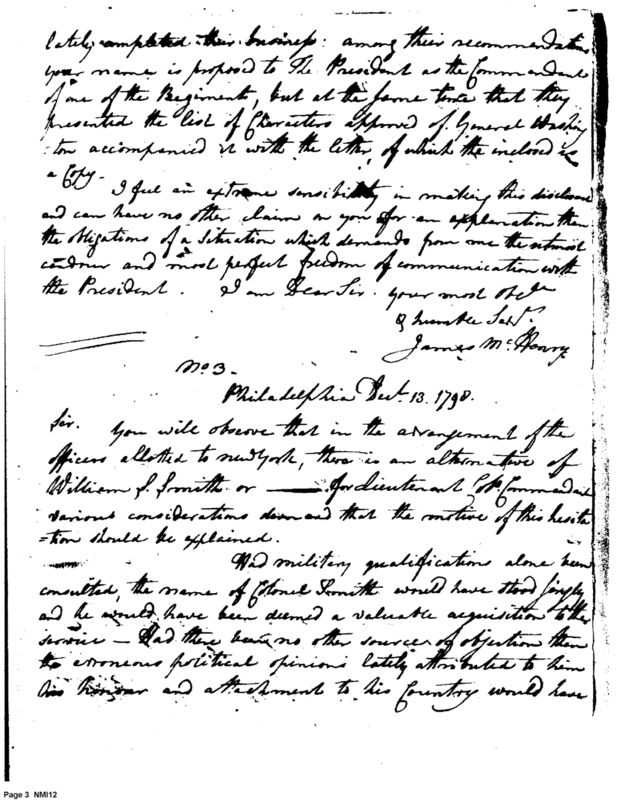 lately completed their business: among their recommendations
your name is proposed to The President as the Commandant
of one of the Regiments, but at the same time that they
presented the list of Characters approved of General Washing
ton accompanied it with the letter, of which the inclosed is
a Copy.
I feel an extreme sensibility in making this disclosure
and can have no other claim on you for an explanation than
the obligations of a Situation which demands from me the utmost
candour and most perfect freedom of communication with
the President. I am Dear Sir. your most Obe
& humble Servt.
James McHenry
No. 3.
Philadelphia Dect. 13. 1798.
Sir. You will observe that in the arrangement of the
officers allotted to new York, there is an alternative of
William S. Smith or —— for Lieutenant Col Commandant
various considerations demand that the motive of this hesita
=tion should be explained.
Had military qualifications alone been
consulted, the name of Colonel Smith would have stood singly
and he would have been deemed a valuable acquisition to the
service — Had there been no other source of objection than
the erroneous political opinions lately attributed to him
his honour and attachment to his Country would have
Page 3 NMI12